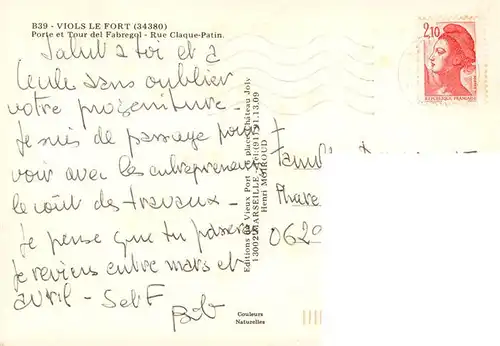 B39 - VIOLS LE FORT (34380)
Porte et Tour del Fabregol - Rue Claque-Patin.
Salut à toi et à
sans oublier
votre progéniture -
Je suis de passage pour
voir avec les entrepreneurs
le coût des travaux -
Je pense que tu passeras
Je reviens entre mars et
avril - Bob
Editions du Vieux Port - 16, place Château Joly
13002 MARSEILLE - Tél (91) 91.13.09
Henri MOIROUD
2,10
REPUBLIQUE FRANÇAISE
Phare
Couleurs
Naturelles